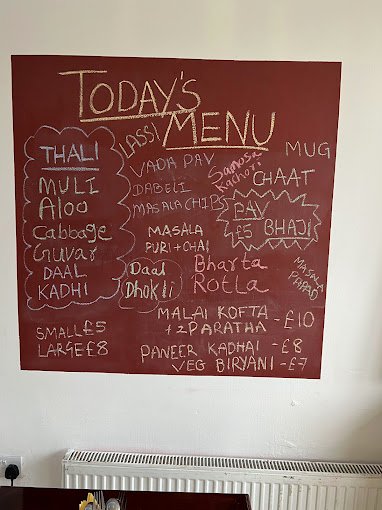 TODAY'S
MENU
LASSI
THALI
MULI
Aloo
Cabbage
Guvar
DAAL
KADHI
SMALL £5
LARGE £8
VADA PAV
DABELI
MASALA CHIPS
MASALA
PURI + CHAI
Daal
Dhokli
Samosa
Kachori
CHAAT
MUG
PAV
£5 BHAJI
Bharta
Rotla
MASALA
PAPAD
MALAI KOFTA
+ 2 PARATHA - £10
PANEER KADHAI - £8
VEG BIRYANI - £7